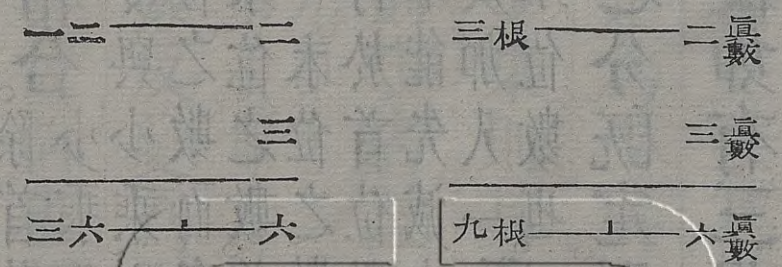 三根——二眞數
三眞數
九根—⊥—六眞數
一二——二
三
三六—⊥—六